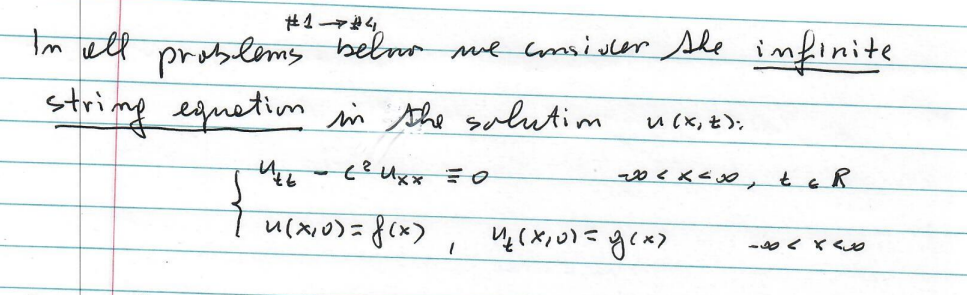 #1 → #4
In all problems below we consider the infinite
string equation in the solution u(x,t):
{ u_tt - c² u_xx ≡ 0 -∞ < x < ∞, t ∈ R
u(x,0) = f(x), u_t(x,0) = g(x) -∞ < x < ∞